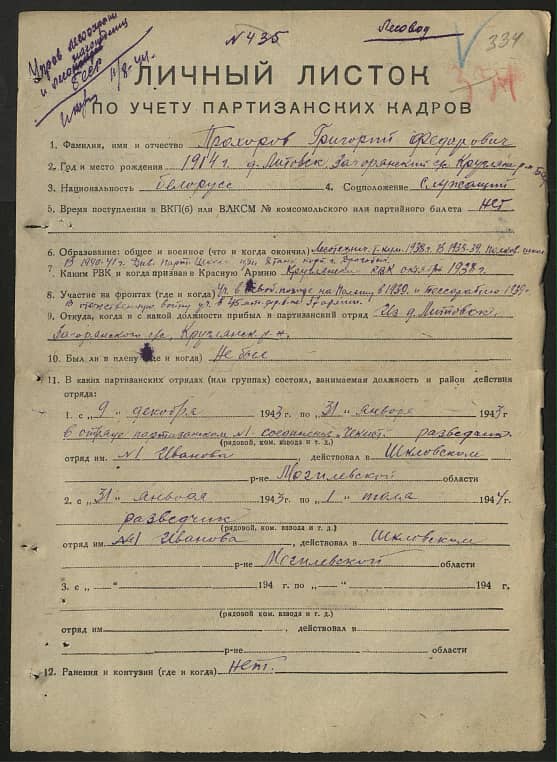 №435
Лесовод
334
Упров
БССР
11/8-44.
ЛИЧНЫЙ ЛИСТОК
ПО УЧЕТУ ПАРТИЗАНСКИХ КАДРОВ
1. Фамилия, имя и отчество Прохоров Григорий Федорович
2. Год и место рождения 1914 г. д. Литовск, Загоранский Круглянск р-н
3. Национальность белорусс 4. Соцположение Служащий
5. Время поступления в ВКП(б) или ВЛКСМ № комсомольского или партийного билета НЕТ
6. Образование: общее и военное (что и когда окончил) 1938г. В 1938-39. Полков.
В 1940-41г. Див. Парт. Школа при
7. Каким РВК и когда призван в Красную Армию Круглянский РВК октябрь 1938г.
8. Участие на фронтах (где и когда) на Польшу в 1939.
в отечественную войну
9. Откуда, когда и с какой должности прибыл в партизанский отряд Из д. Литовск,
Загоранского с/с, Круглянск р-н.
10. Был ли в плену (где и когда) Не был
11. В каких партизанских отрядах (или группах) состоял, занимаемая должность и район действия
отряда:
1. с „9“ декабря 1943 г. по „31“ января 1943 г
в отряде партизанском №1 соединение Чекист. разведчик
(рядовой, ком. взвода и т. д.)
отряд им. №1 Иванова, действовал в Шкловском
р-не Могилевской области
2. с „31“ января 1943 г. по „1“ 1944 г.
разведчик
(рядовой, ком. взвода и т. д.)
отряд им. №1 Иванова, действовал в Шкловском
р-не Могилевской области
3. с „ “ 194 г. по „ “ 194 г,
(рядовой, ком. взвода и т. д.)
отряд им. , действовал в
р-не области
12. Ранения и контузии (где и когда) нет.